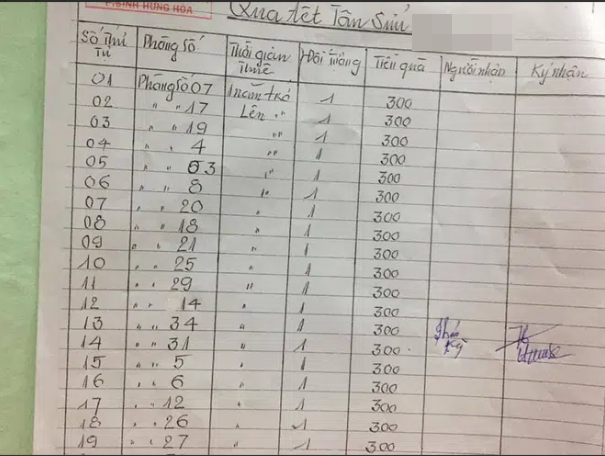 P.BÌNH HƯNG HÒA
Quà tết Tân Sửu
Số Thứ Tự Phòng số Thời gian Thuê Đôi tượng Tiền quà Người nhận Ký nhận
01 Phòng số 07 1 năm trở 1 300
02 " " 17 Lên " 1 300
03 " " 19 " 1 300
04 " " 4 " 1 300
05 " " 03 " 1 300
06 " " 8 " 1 300
07 " " 20 " 1 300
08 " " 18 " 1 300
09 " " 21 " 1 300
10 " " 25 " 1 300
11 " " 29 " 1 300
12 " " 14 " 1 300
13 " " 34 " 1 300
14 " " 31 " 1 300
15 " " 5 " 1 300
16 " " 6 " 1 300
17 " " 12 " 1 300
18 " " 26 " 1 300
19 " " 27 " 1 300